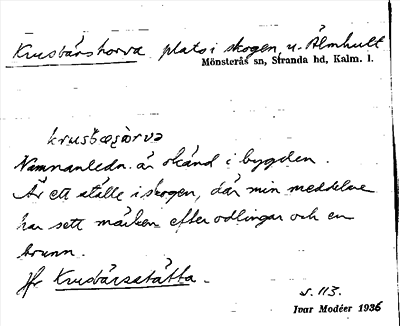 Krusbärshorva plats i skogen, u. Älmhult
Mönsterås sn, Stranda hd, Kalm. l.
krusbæsɔrva
Namnanledn. är okänd i bygden.
Är ett ställe i skogen, där min meddelare
har sett märken efter odlingar och en
brunn.
Jfr Krusbärsatåtta.
s. 113.
Ivar Modéer 1936